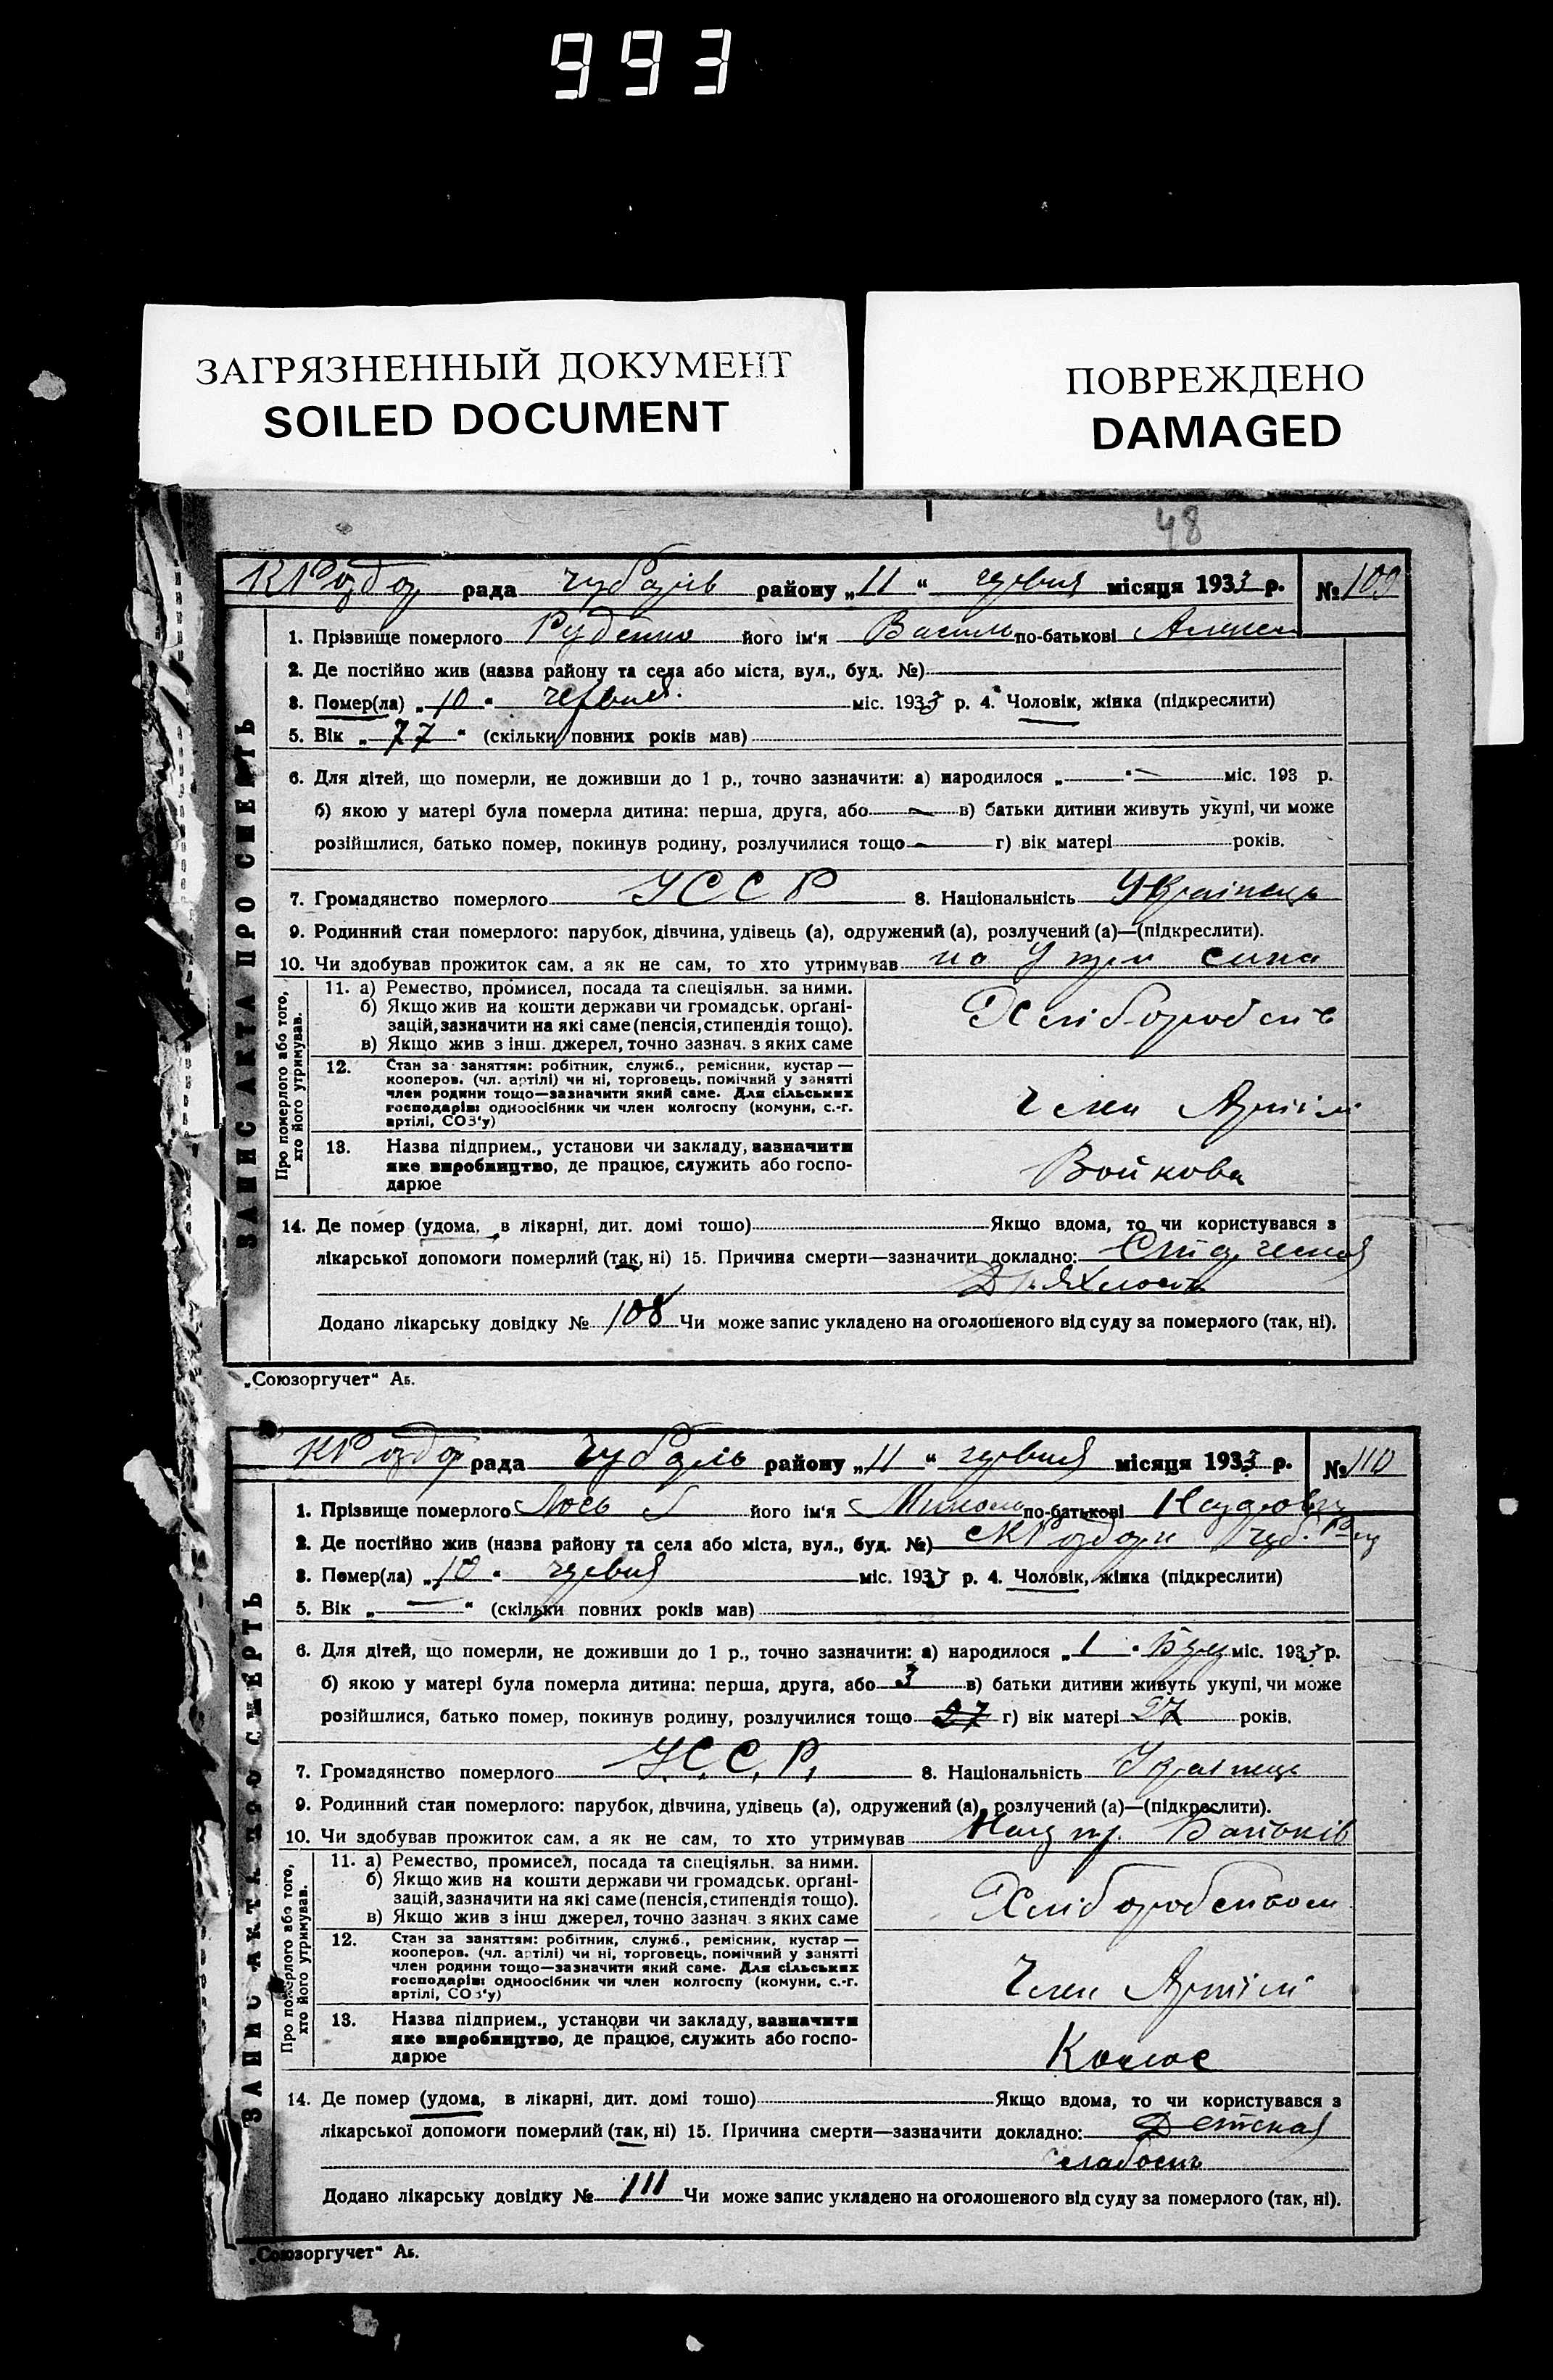 993
ЗАГРЯЗНЕННЫЙ ДОКУМЕНТ
SOILED DOCUMENT
ПОВРЕЖДЕНО
DAMAGED
48
рада району „11“ червня місяця 1933 р. № 109
ЗАПИС АКТА ПРО СМЕРТЬ
1. Прізвище померлого Руденко його ім'я Василь по-батькові
2. Де постійно жив (назва району та села або міста, вул., буд. №)
3. Помер(ла) „10“ червня. міс. 1933 р. 4. Чоловік, жінка (підкреслити)
5. Вік „77“ (скільки повних років мав)
6. Для дітей, що померли, не доживши до 1 р., точно зазначити: а) народилося „ “ міс. 193 р.
б) якою у матері була померла дитина: перша, друга, або в) батьки дитини живуть укупі, чи може
розійшлися, батько помер, покинув родину, розлучилися тощо г) вік матері років.
7. Громадянство померлого УССР 8. Національність Українець
9. Родинний стан померлого: парубок, дівчина, удівець (а), одружений (а), розлучений (а)—(підкреслити).
10. Чи здобував прожиток сам, а як не сам, то хто утримував на утрим сина
Про померлого або того, хто його утримував.
11. а) Ремество, промисел, посада та спеціяльн. за ними.
б) Якщо жив на кошти держави чи громадськ. орґані-
зацій, зазначити на які саме (пенсія, стипендія тощо).
в) Якщо жив з інш. джерел, точно зазнач. з яких саме
Хліборобств
12. Стан за заняттям: робітник, служб., ремісник, кустар—
кооперов. (чл. артілі) чи ні, торговець, помічний у занятті
член родини тощо—зазначити який саме. Для сільських
господарів: одноосібник чи член колгоспу (комуни, с.-г.
артілі, СОЗ'у)
Член Артілі
13. Назва підприєм., установи чи закладу, зазначити
яке виробництво, де працює, служить або госпо-
дарює
Войкова
14. Де помер (удома, в лікарні, дит. домі тошо) Якщо вдома, то чи користувався з
лікарської допомоги померлий (так, ні) 15. Причина смерти—зазначити докладно: Старческая
Дряхлость
Додано лікарську довідку № 108 Чи може запис укладено на оголошеного від суду за померлого (так, ні).
„Союзоргучет“ Аб.
рада району „11“ червня місяця 1933 р. № 110
ЗАПИС АКТА ПРО СМЕРТЬ
1. Прізвище померлого Лось його ім'я Микола по-батькові
2. Де постійно жив (назва району та села або міста, вул., буд. №)
3. Помер(ла) „10“ червня міс. 1933 р. 4. Чоловік, жінка (підкреслити)
5. Вік „—“ (скільки повних років мав)
6. Для дітей, що померли, не доживши до 1 р., точно зазначити: а) народилося „1“ міс. 1933 р.
б) якою у матері була померла дитина: перша, друга, або 3 в) батьки дитини живуть укупі, чи може
розійшлися, батько помер, покинув родину, розлучилися тощо 27 г) вік матері 27 років.
7. Громадянство померлого У.С.С.Р. 8. Національність Українець
9. Родинний стан померлого: парубок, дівчина, удівець (а), одружений (а), розлучений (а)—(підкреслити).
10. Чи здобував прожиток сам, а як не сам, то хто утримував На утр. Батьків
Про померлого або того, хто його утримував.
11. а) Ремество, промисел, посада та спеціяльн. за ними.
б) Якщо жив на кошти держави чи громадськ. орґані-
зацій, зазначити на які саме (пенсія, стипендія тощо).
в) Якщо жив з інш джерел, точно зазнач. з яких саме
Хліборобством
12. Стан за заняттям: робітник, служб., ремісник, кустар—
кооперов. (чл. артілі) чи ні, торговець, помічний у занятті
член родини тощо—зазначити який саме. Для сільських
господарів: одноосібник чи член колгоспу (комуни, с.-г.
артілі, СОЗ'у)
Член Артілі
13. Назва підприєм., установи чи закладу, зазначити
яке виробництво, де працює, служить або госпо-
дарює
Колос
14. Де помер (удома, в лікарні, дит. домі тошо) Якщо вдома, то чи користувався з
лікарської допомоги померлий (так, ні) 15. Причина смерти—зазначити докладно: Детская
слабость
Додано лікарську довідку № 111 Чи може запис укладено на оголошеного від суду за померлого (так, ні).
„Союзоргучет“ Аб.